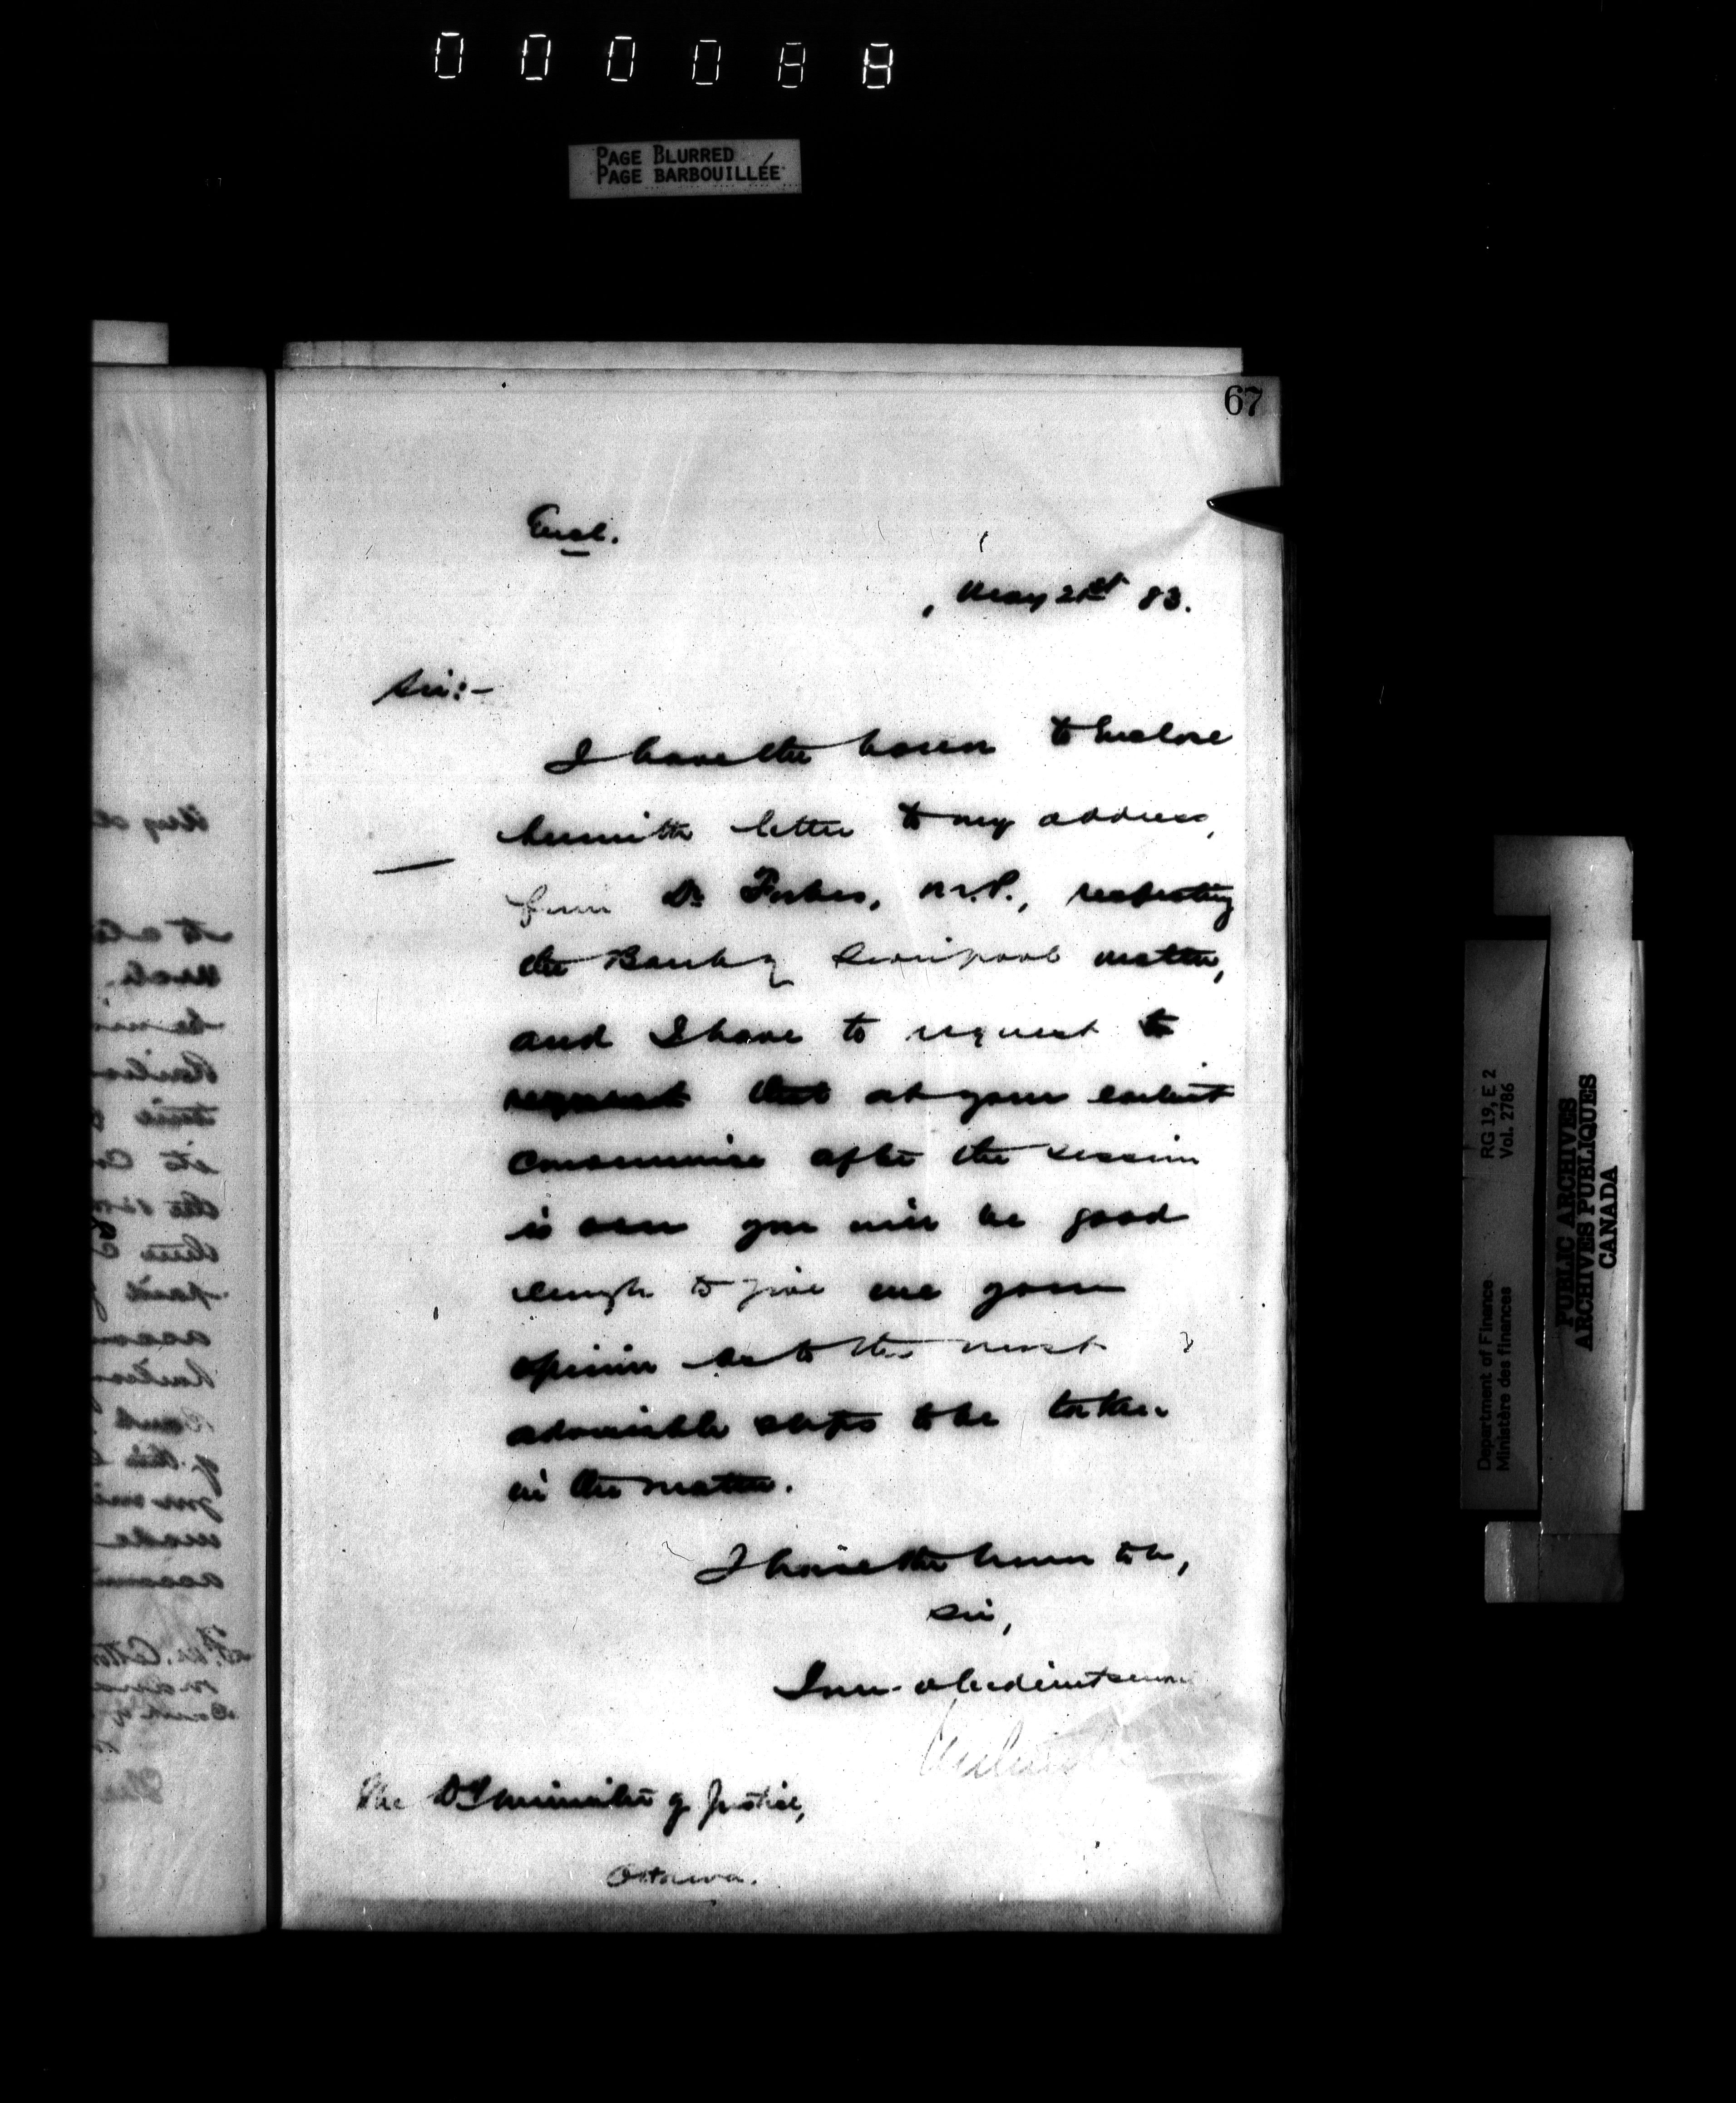 PAGE BLURRED
PAGE BARBOUILLÉE
67
Encl.
May 21st 83.
Sir:-
I have the honor to Enclose
herewith letter to my address,
from Dr Forbes, M.P., respecting
the Bank of Liverpool matter,
and I have to request to
request that at your earliest
convenience after the session
is over you will be good
enough to give me your
opinion as to the most
advisable steps to be taken
in the matter.
I have the honor to be,
Sir,
Your obedient servant
The D. Minister of Justice,
Ottawa.
RG 19, E 2
Vol. 2786
Department of Finance
Ministère des finances
PUBLIC ARCHIVES
ARCHIVES PUBLIQUES
CANADA